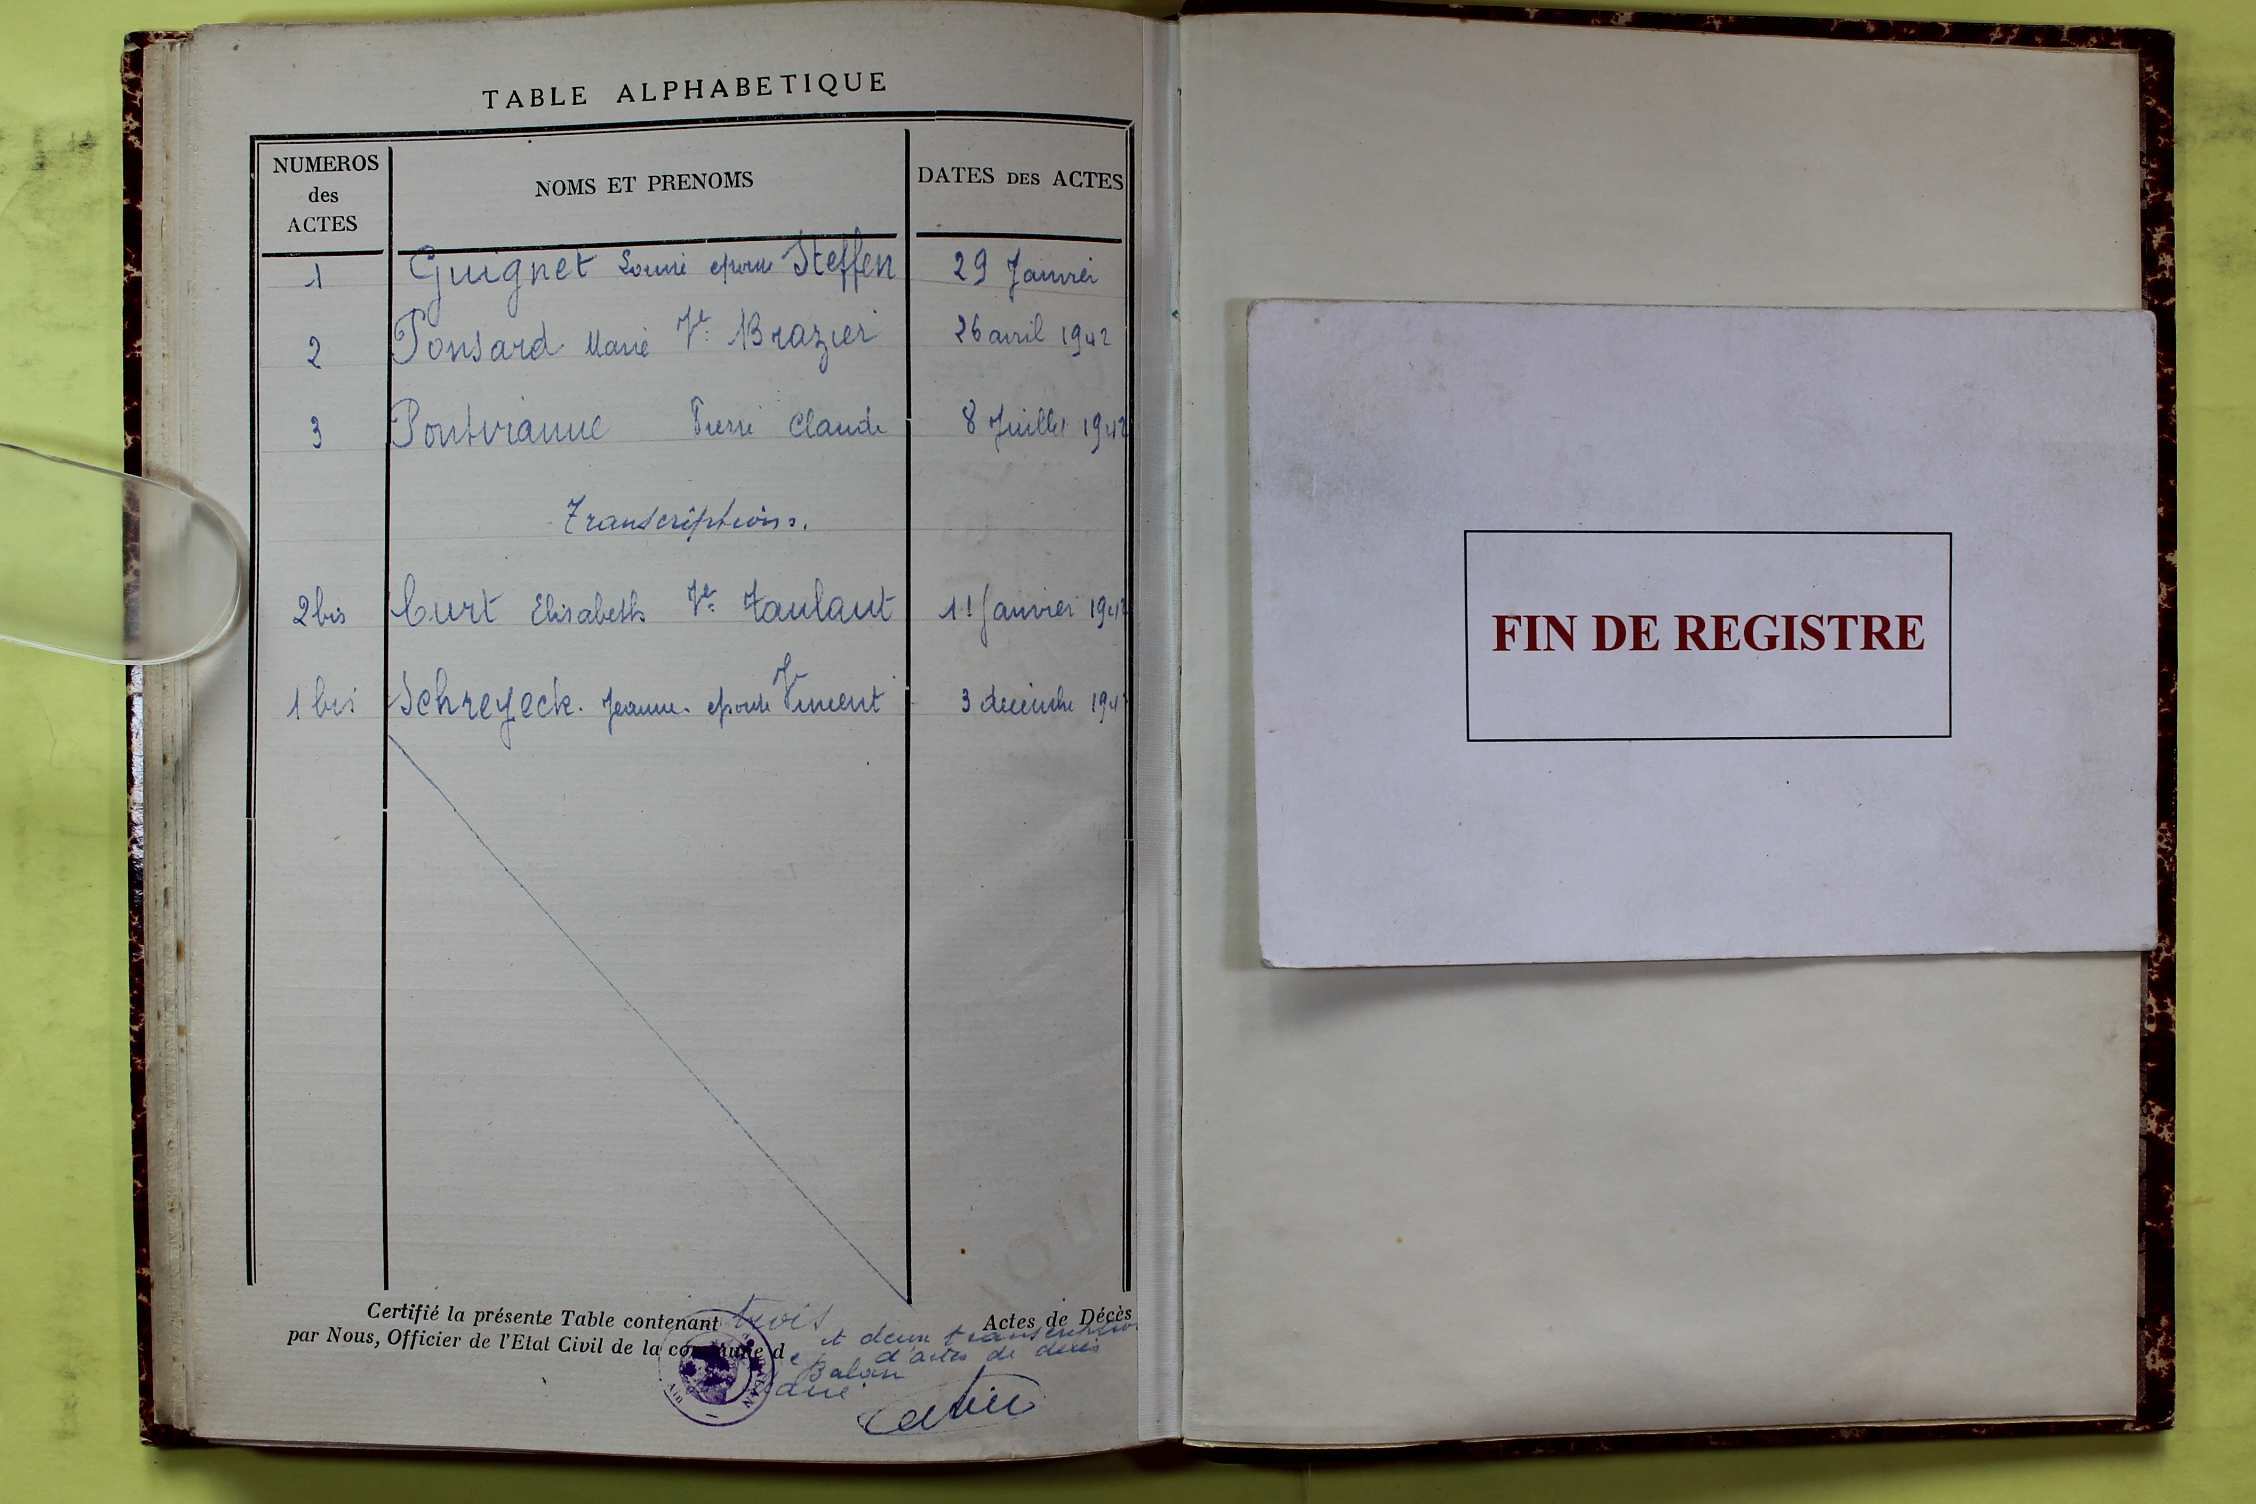 TABLE ALPHABETIQUE
NUMEROS des ACTES
NOMS ET PRENOMS
DATES DES ACTES
1 Guignet Louise epouse Steffen 29 Janvier
2 Ponsard Marie Ve Brazier 26 avril 1942
3 Pontvianne Pierre Claude 8 Juillet 1942
Transcriptions.
2 bis Curt Elisabeth Ve Taulaut 11 Janvier 1942
1 bis Schreyeck. Jeanne. epouse Vincent 3 decembre 194
Certifié la présente Table contenant trois Actes de Décès
et deux transcriptions
par Nous, Officier de l'Etat Civil de la commune de
d'actes de décès
Balan
Ain
FIN DE REGISTRE